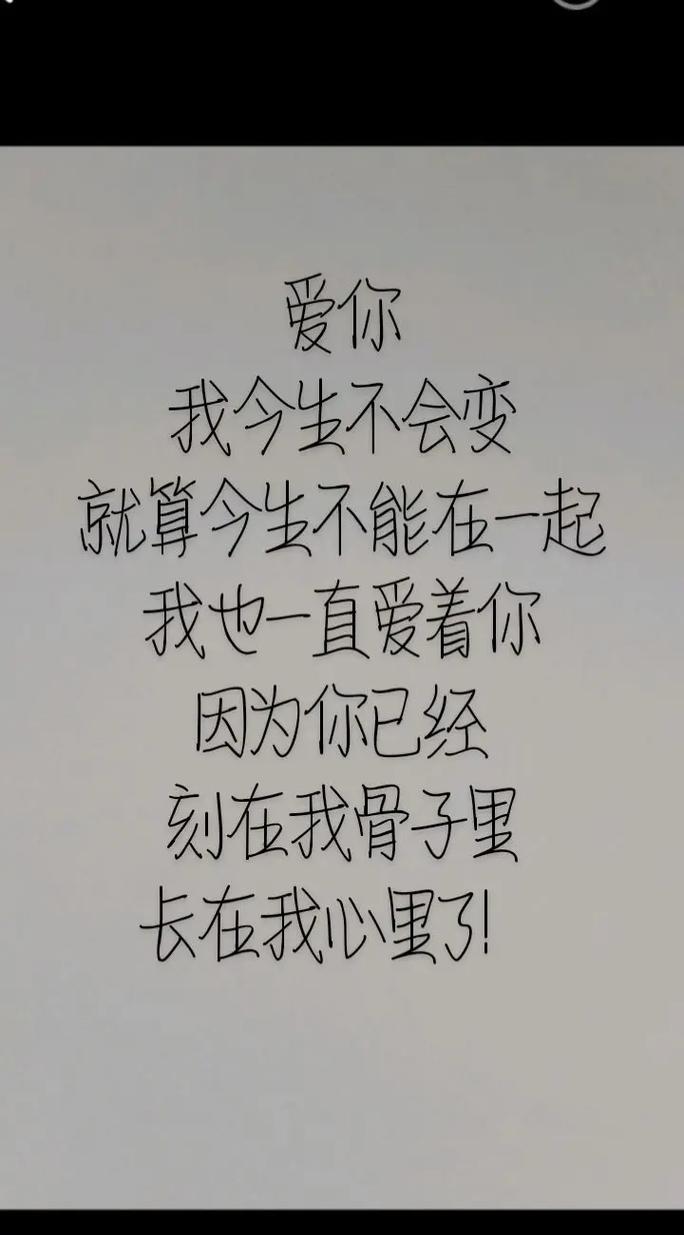 爱你
我今生不会变
就算今生不能在一起
我也一直爱着你
因为你已经
刻在我骨子里
长在我心里了!